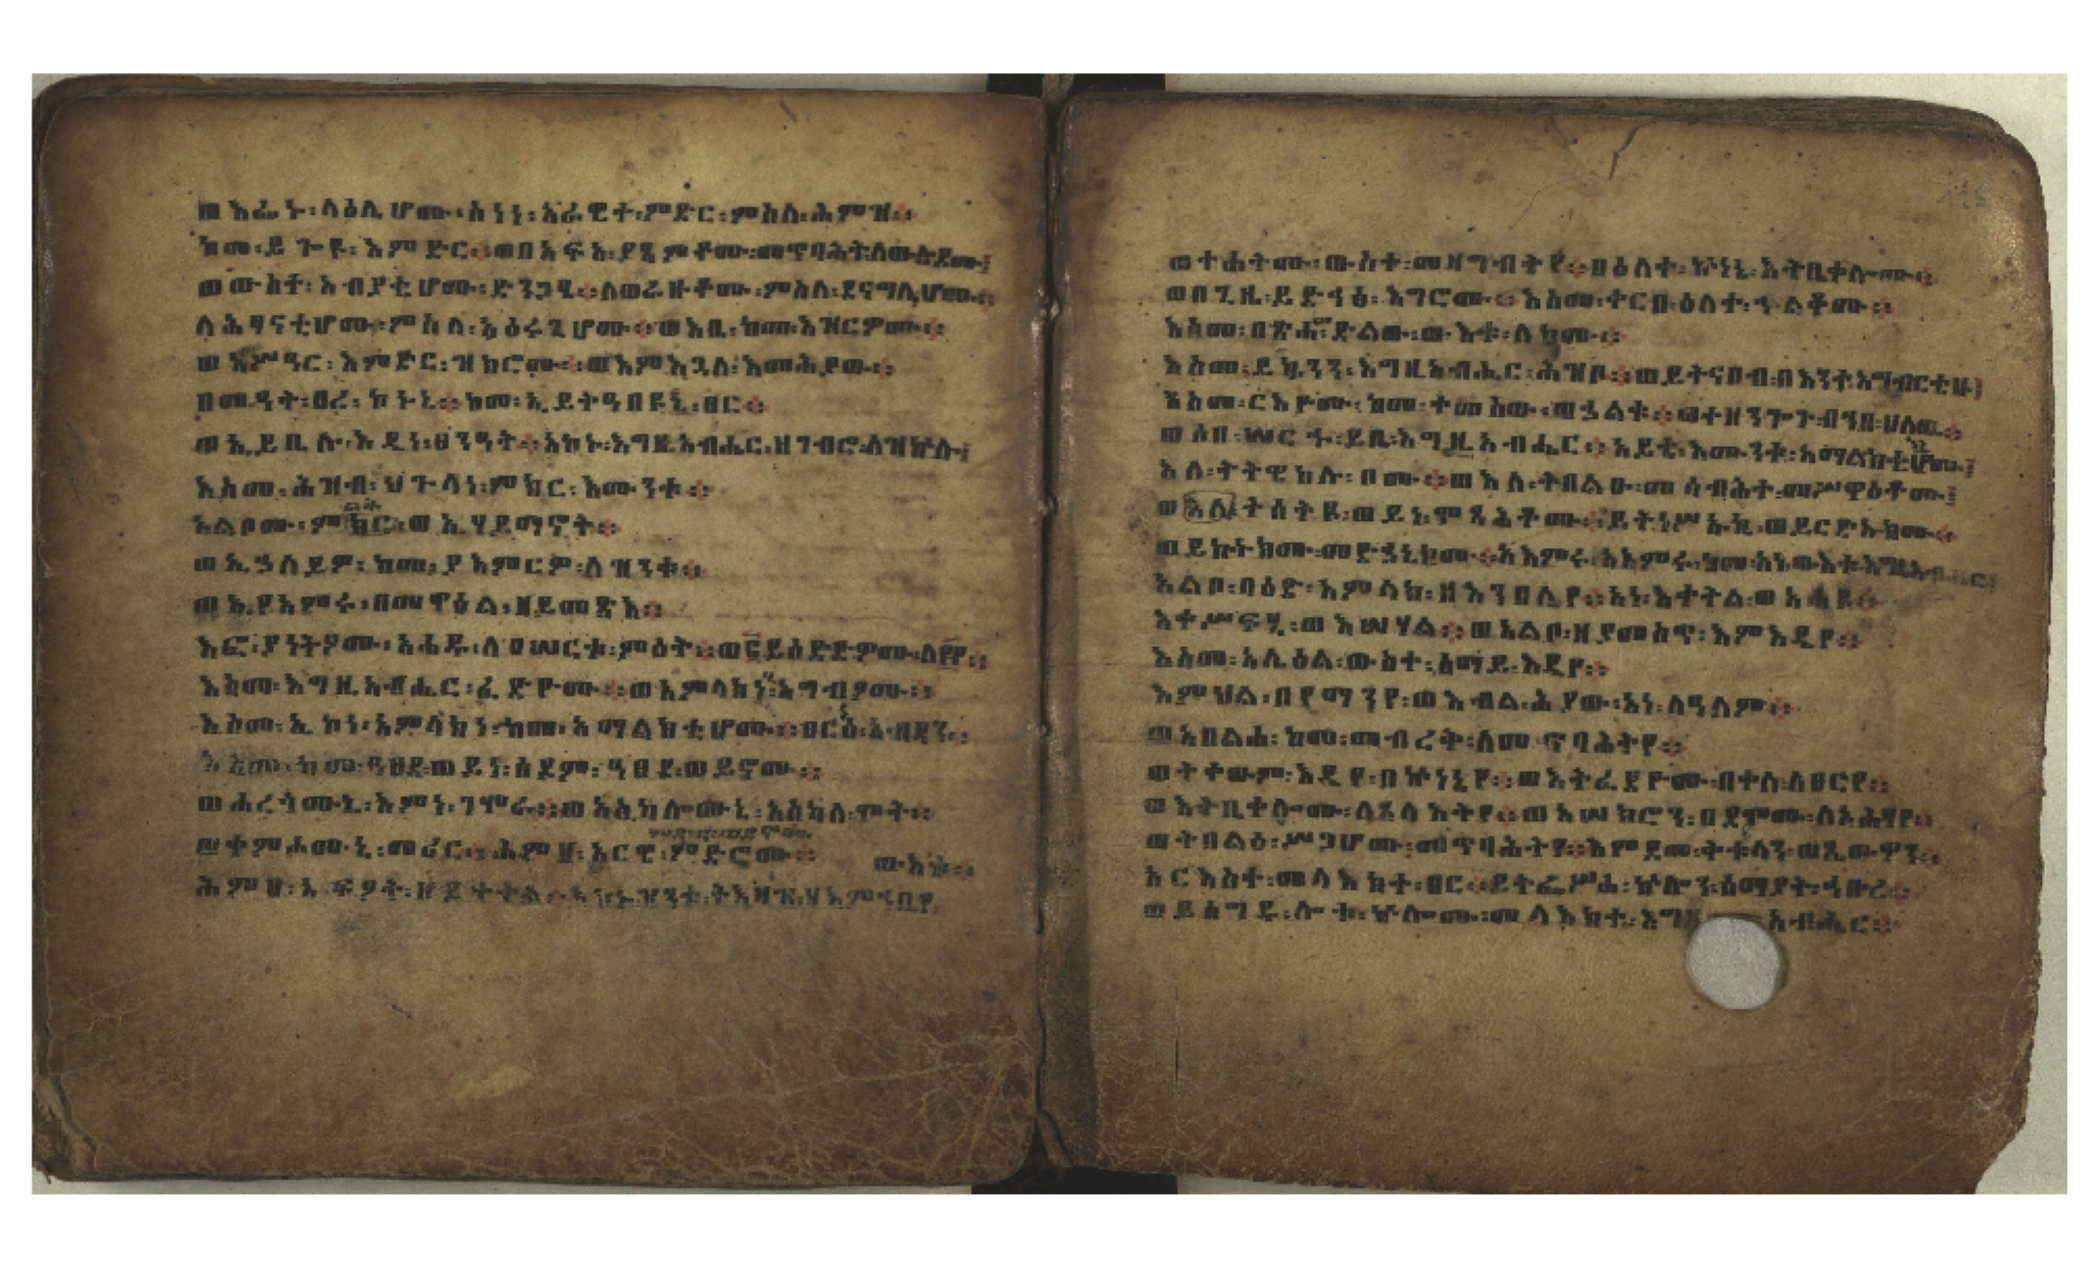 ወእፌኑ፡ላዕሌሆሙ፡ስነነ፡አራዊተ፡ምድር፡ምስለ፡ሕምዝ።
ከመ፡ይጕየ፡እምድር።ወበአፍአ፡ያጼምቶሙ፡መጥባሕት፡ለውሉደሙ፤
ወውስተ፡አብያቲሆሙ፡ድንጋፄ።ለወራዙቶሙ፡ምስለ፡ደናግሊሆሙ።
ለሕፃናቲሆሙ፡ምስለ፡አዕሩጊሆሙ።ወእቤ፡ከመ፡እዝርዎሙ።
ወእሥዓር፡እምድር፡ዝክሮሙ።ወእምእጓለ፡እመሕያው።
በመዓት፡ፀረ፡ኮኑኒ።ከመ፡ኢይትዓበዩኒ፡ፀር።
ወኢይቤሉ፡እዴነ፡ፀንዓት።አኮኑ፡እግዚአብሔር፡ዘገብሮ፡ለዝኵሉ፤
እስመ፡ሕዝብ፡ህጉላነ፡ምክር፡እሙንቱ።
አልቦሙ፡ምክር፡ወኢሃይማኖት።
ወኢኃለይዎ፡ከመ፡ያእምርዎ፡ለዝንቱ።
ወኢያእምሩ፡በመዋዕል፡ዘይመጽእ።
እፎ፡ያነትዖሙ፡አሐዱ፡ለዐሠርቱ፡ምዕት።ወ፪ይሰድድዎሙ፡ለ፼፼።
እስመ፡እግዚአብሔር፡ፈድዮሙ።ወአምላክነ፡አግብዖሙ።
እስመ፡ኢኮነ፡አምላክነ፡ከመ፡አማልክቲሆሙ።ፀርሰ፡አብዳን።
እስመ፡ከመ፡ዓፀደ፡ወይነ፡ሰዶም፡ዓፀደ፡ወይኖሙ።
ወሐረጎሙኒ፡እምነ፡ገሞራ።ወአስካሎሙኒ፡አስካለ፡ሞት።
ወቀምሐሙኒ፡መሪር።ሕምዘ፡አርዌ፡ምድሮሙ።
ውእቱ።
ሕምዘ፡አፍዖት፡ዘይቀትል።አኮኑ፡ዝንቱ፡ትእዛዝ፡ሃ፡እምኀቤየ
ወተሐትሙ፡ውስተ፡መዛግብትየ።በዕለተ፡ኵነኔ፡እትቤቀሎሙ።
ወበጊዜ፡ይድኅፅ፡እግሮሙ።እስመ፡ቀርበ፡ዕለተ፡ኀልቆሙ።
እስመ፡በጽሐ፡ድልው፡ውእቱ፡ለክሙ።
እስመ፡ይኴንን፡እግዚአብሔር፡ሕዝቦ።ወይትናበብ፡በእንተ፡አግብርቲሁ፤
እስመ፡ርእዮሙ፡ከመ፡ተመስው፡ወኃልቁ።
ወሶበ፡ሠርሑ፡ይቤ፡እግዚአብሔር።አይቴ፡እሙንቱ፡አማልክቲሆሙ፤
እለ፡ትትዌከሉ፡ቦሙ።ወእለ፡ትበልዑ፡መሳብሕተ፡መሥዋዕቶሙ፤
ወእለ፡ትሰትዩ፡ወይነ፡ሞጻሕቶሙ።ይትነሥኡኬ፡ወይርድኡክሙ።
ወይኩኑክሙ፡መድኃኒክሙ።አእምሩ፡አእምሩ፡ከመ፡አነ፡ውእቱ፡እግዚአብሔር።
አልቦ፡ባዕድ፡አምላክ፡ዘእንበሌየ።አነ፡እቀትል፡ወአሐዩ።
እቀሥፍሂ፡ወእሣሃል።ወአልቦ፡ዘያመስጥ፡እምእዴየ።
እስመ፡አሌዕል፡ውስተ፡ሰማይ፡እዴየ።
እምህል፡በየማንየ፡ወእብል፡ሕያው፡አነ፡ለዓለም።
ወአበልሕ፡ከመ፡መብረቅ፡ለመጥባሕትየ።
ወትቀውም፡እዴየ፡በኵነኔየ።ወእትፈደዮሙ፡በቀለ፡ለፀርየ።
ወእትቤቀሎሙ፡ለጸላእትየ።ወአሠክሮን፡በደሞሙ፡ለአሕፃየ።
ወትበልዕ፡ሥጋሆሙ፡መጥባሕትየ።እምደመ፡ቅቱላን፡ወጼውዋን።
እርእስተ፡መላእክተ፡ፀር።ይትፌሥሐ፡ኵሎን፡ሰማያት፡ኅቡረ።
ወይሰግዱ፡ሎቱ፡ኵሎሙ፡መላእክተ፡እግዚአብሔር።